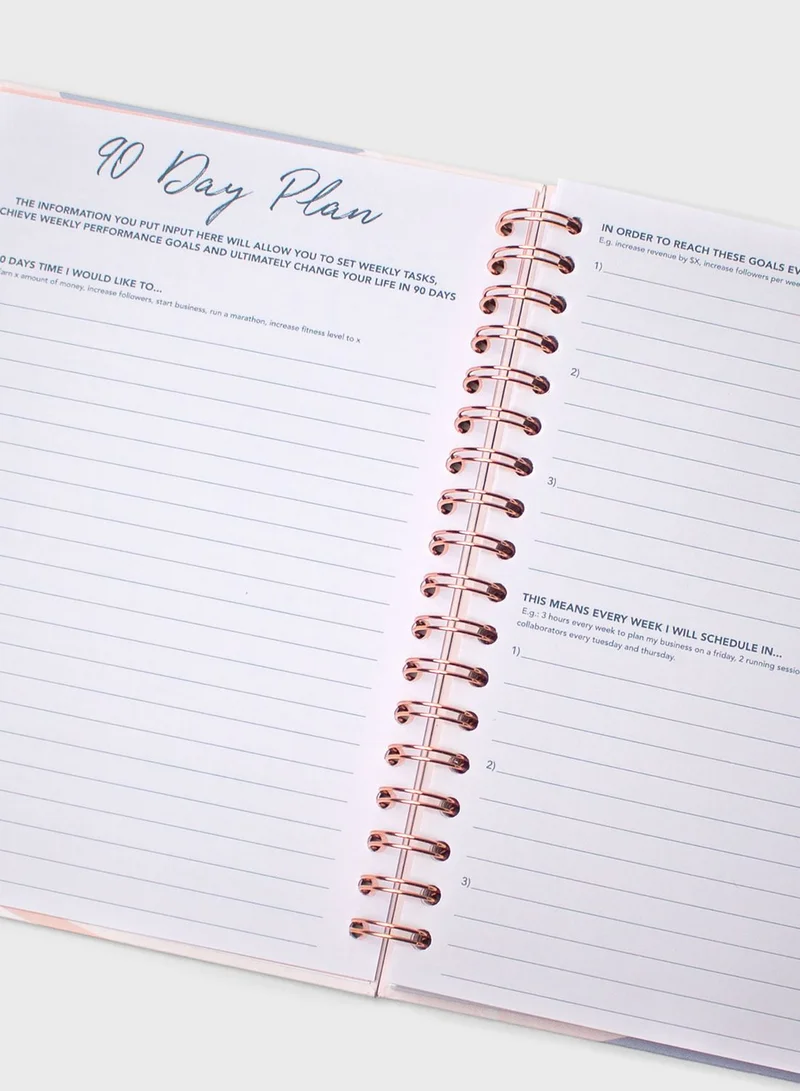 90 Day Plan
THE INFORMATION YOU PUT INPUT HERE WILL ALLOW YOU TO SET WEEKLY TASKS,
CHIEVE WEEKLY PERFORMANCE GOALS AND ULTIMATELY CHANGE YOUR LIFE IN 90 DAYS
0 DAYS TIME I WOULD LIKE TO...
Earn x amount of money, increase followers, start business, run a marathon, increase fitness level to x
IN ORDER TO REACH THESE GOALS EV
E.g. increase revenue by $X, increase followers per wee
1)
2)
3)
THIS MEANS EVERY WEEK I WILL SCHEDULE IN...
E.g.: 3 hours every week to plan my business on a friday, 2 running sessio
collaborators every tuesday and thursday.
1)
2)
3)